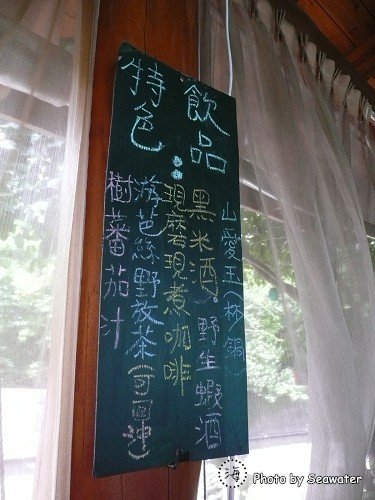 特色
飲品：
山愛玉(杯、鍋)
黑米酒。野生蝦酒
現磨現煮咖啡
游芭絲野放茶(可回沖)
樹蕃茄汁
海 Photo by Seawater